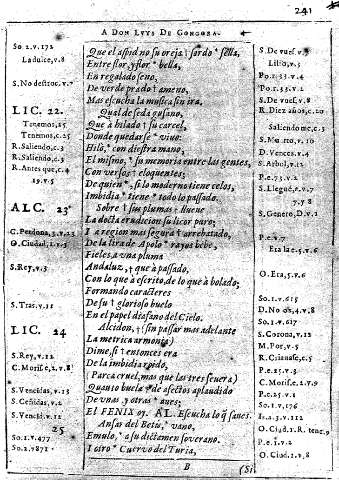 241
A DON LUYS DE GONGORA.
So 1.v.172
Que el aspid no su oreja † sordo * sella,
S. De vuel. v.8
La dulce, v.8
Entre flor, y flor * bella,
Lilio, v.5
En regalado seno,
Po.1.33.v.4
S. No destroc. v.7
De verde prado † ameno,
Po.1.33.v.2
Mas escucha la musica sin ira,
S. De vuel. v.8
LIC. 22.
Qual de seda gusano,
R. Diez años, c.20
Tenemos, 25
Que à hilado † su carcel,
Tenemos, c.25
Donde quedarse * vivo:
Saliendome, c.3
R. Saliendo, c.3
Hilò, * con diestra mano,
S. Muerto, v.10
R. Saliendo, c.3
El mismo, * su memoria entre las gentes,
D. Vences. v.4
R. Antes que, c.4
Con versos † eloquentes;
S. Arbol, v.12
29. v.5
De quien * si lo moderno tiene celos,
P.e.73.v.2
Imbidia * tiene * todo lo passado.
S. Llegué, e.v.7
ALC. 23
Sobre † sus plumas * llueve
7.y 8
La docta erudicion su licor puro;
S. Genero, D.v.1
C. Perdona, 3.v.23
I a region mas segura † arrebatado,
O. Ciudad, 1.v.3
De la lira de Apolo * rayos bebe,
P.e.v.7
Fieles, a una pluma
Era la e.5.v.6
S. Rey, v.3
Andaluz, † que à passado,
Con lo que à escrito, de lo que à bolado;
O. Era, 5.v.6
Fermando caracteres
S. Tras, v.11
De su † glorioso buelo
So.1.v.615
En el papel diafano del Cielo.
D. No os, 4.v.8
LIC. 24
Alcidon, † (sin passar mas adelante
So.1.v.617
La metrica armonia)
S. Corona, v.12
S. Rey, v.12
Dime, si † entonces era
M. Por, v.8
C. Morise, 2.v.8
De la imbidia aplaudido,
R. Criavase, c.5
(Parca cruel, mas que las tres severa)
P.e.25.v.3
S. Vencidas, v.13
Quanto buela * de afectos aplaudido
C. Morise, 2.v.9
S. Ceñidas, v.2
De unas, y otras * aves;
P.e.25.v.1
S. Venció, v.12
El FENIX oy. AL. Escucha lo que sanes.
So.1.v.176
25
Ansar del Betis, * vano,
Is.a.3.v.112
So.1.v.477
Emulo, * a su dictamen soverano.
O. Ciud. 1.R. tene, 9
So.2.v.871
I otro * Cuervo del Turia,
P.e.1.v.2
B
(Si
O. Ciud. 1.v.8